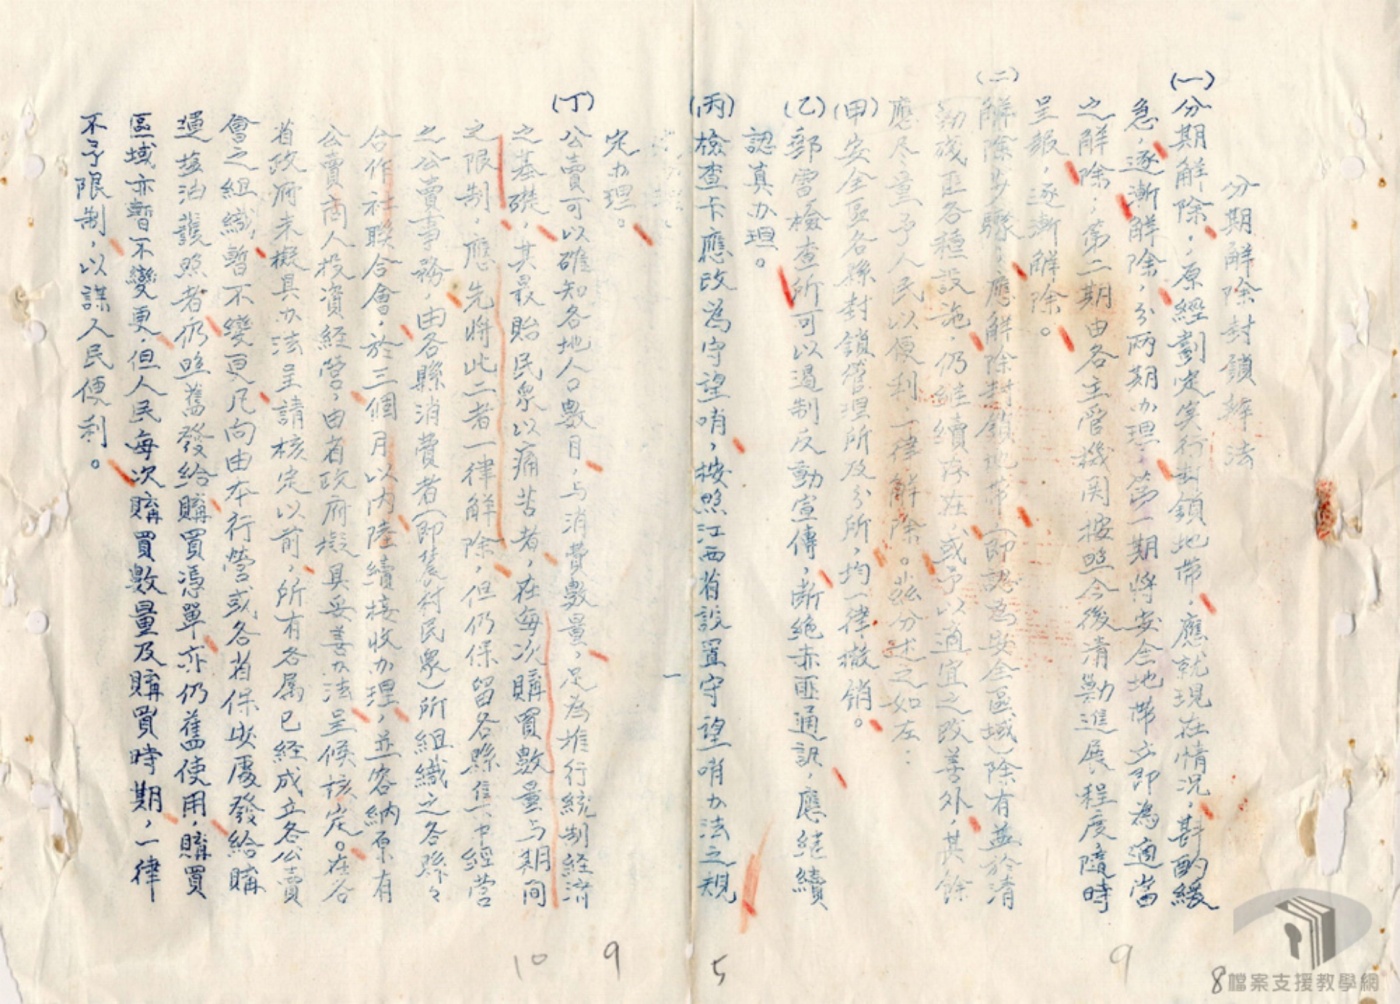 分期解除封鎖辦法
(一)分期解除，原經劃定实行封鎖地帶，應就現在情況，斟酌緩
急，逐漸解除，分兩期办理，第一期将安全地帶立即為適當
之解除，第二期由各主管機関按照今後清勦進展程度隨時
呈報，逐漸解除。
(二)解除步驟，應解除封鎖地帶（即認為安全區域）除有益於清
勦殘匪各種設施，仍继續存在，或予以適宜之改善外，其餘
應尽量予人民以便利，一律解除。兹分述之如左：
(甲)安全區各縣封鎖管理所及分所，均一律撤銷。
(乙)郵電檢查所可以遏制反動宣傳，断絶赤匪通訊，應継續
認真办理。
(丙)檢查卡應改為守望哨，按照江西省設置守望哨办法之規
定办理。
(丁)公賣可以確知各地人口數目，与消費數量，足為推行統制経済
之基礎，其最貽民衆以痛苦者，在每次購買數量与期间
之限制，應先將此二者一律解除，但仍保留各縣信六中経营
之公賣事務，由各縣消費者（即農村民衆）所組織之各縣々
合作社联合會，於三個月以内陸續接收办理，並容納原有
公賣商人投資経營，由省政府擬具妥善办法呈候核定。在各
省政府未擬具办法呈請核定以前，所有各属已経成立各公賣
會之組織暫不變更，凡向由本行營或各省保安處發給購
運盐油護照者，仍照舊發給購買憑單亦仍舊使用，購買
區域亦暫不變更，但人民每次購買數量及購買時期，一律
不予限制，以謀人民便利。
10
9
5
9
8
檔案支援教學網